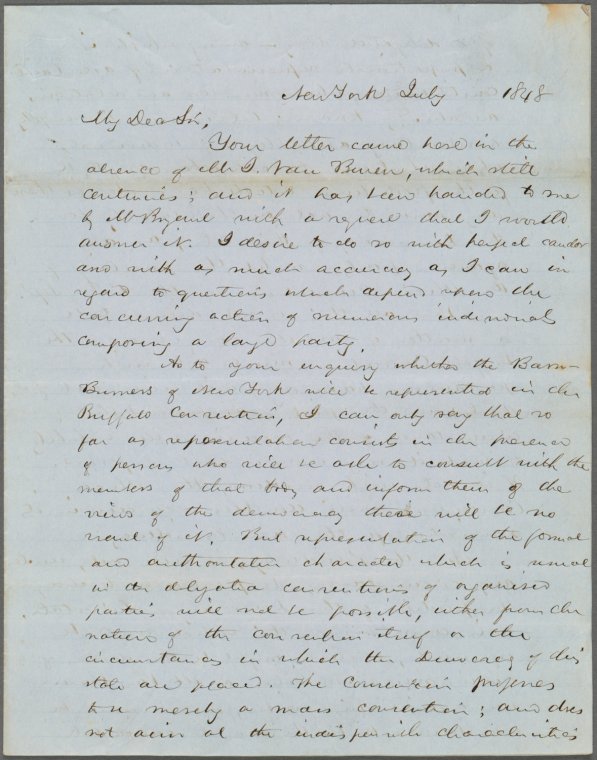 New York July 1848
My Dear Sir,
Your letter came here in the
absence of Mr J. Van Buren, which still
continues; and it has been handed to me
by Mr Bryant with a request that I would
answer it. I desire to do so with perfect candor
and with as much accuracy as I can in
regard to questions which depend upon the
concurring action of numerous individuals
composing a large party.
As to your inquiry whether the Barn-
Burners of New York will be represented in the
Buffalo Convention, I can only say that so
far as representation consists in the presence
of persons who will be able to consult with the
members of that body and inform them of the
views of the democracy there will be no
want of it. But representation of the formal
and authoritative character which is usual
in the delegated conventions of organised
parties will not be possible, either from the
nature of the convention itself or the
circumstances in which the Democracy of this
state are placed. The Convention proposes
to be merely a mass convention; and does
not aim at the indispensible characteristics